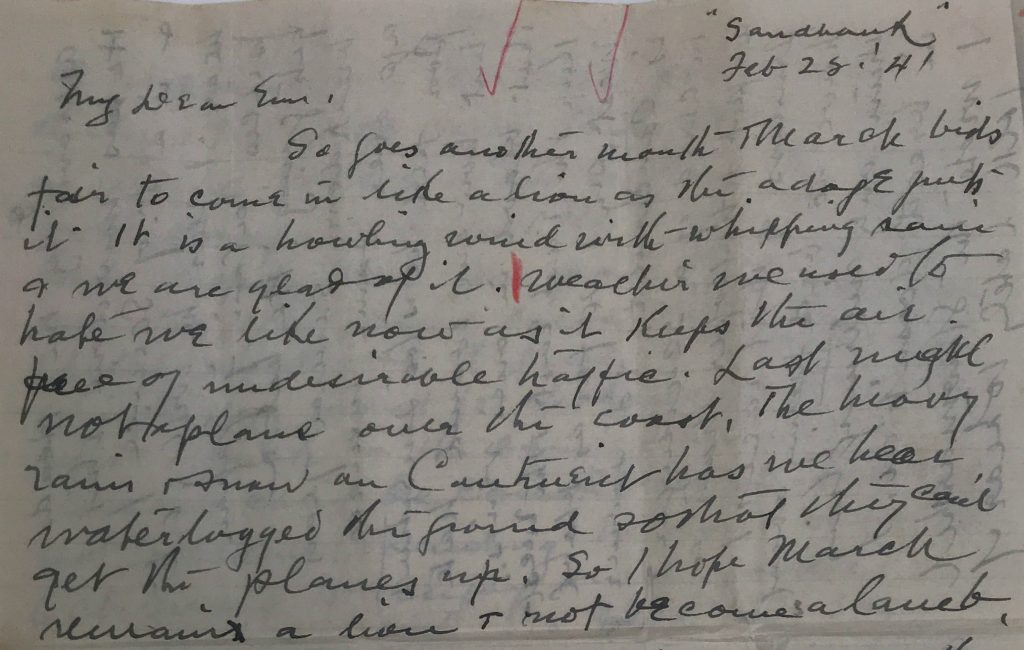 "Sandbank"
Feb 28. '41
My dear Em,
So goes another month March bids
fair to come in like a lion as the adage puts
it It is a howling wind with whipping rain
& we are glad of it. Weather we used to
hate we like now as it keeps the air
free of undesirable traffic. Last night
not a plane over the coast. The heavy
rain & snow on Continent has we hear
waterlogged the ground so that they can't
get the planes up. So I hope March
remains a lion & not become a lamb.